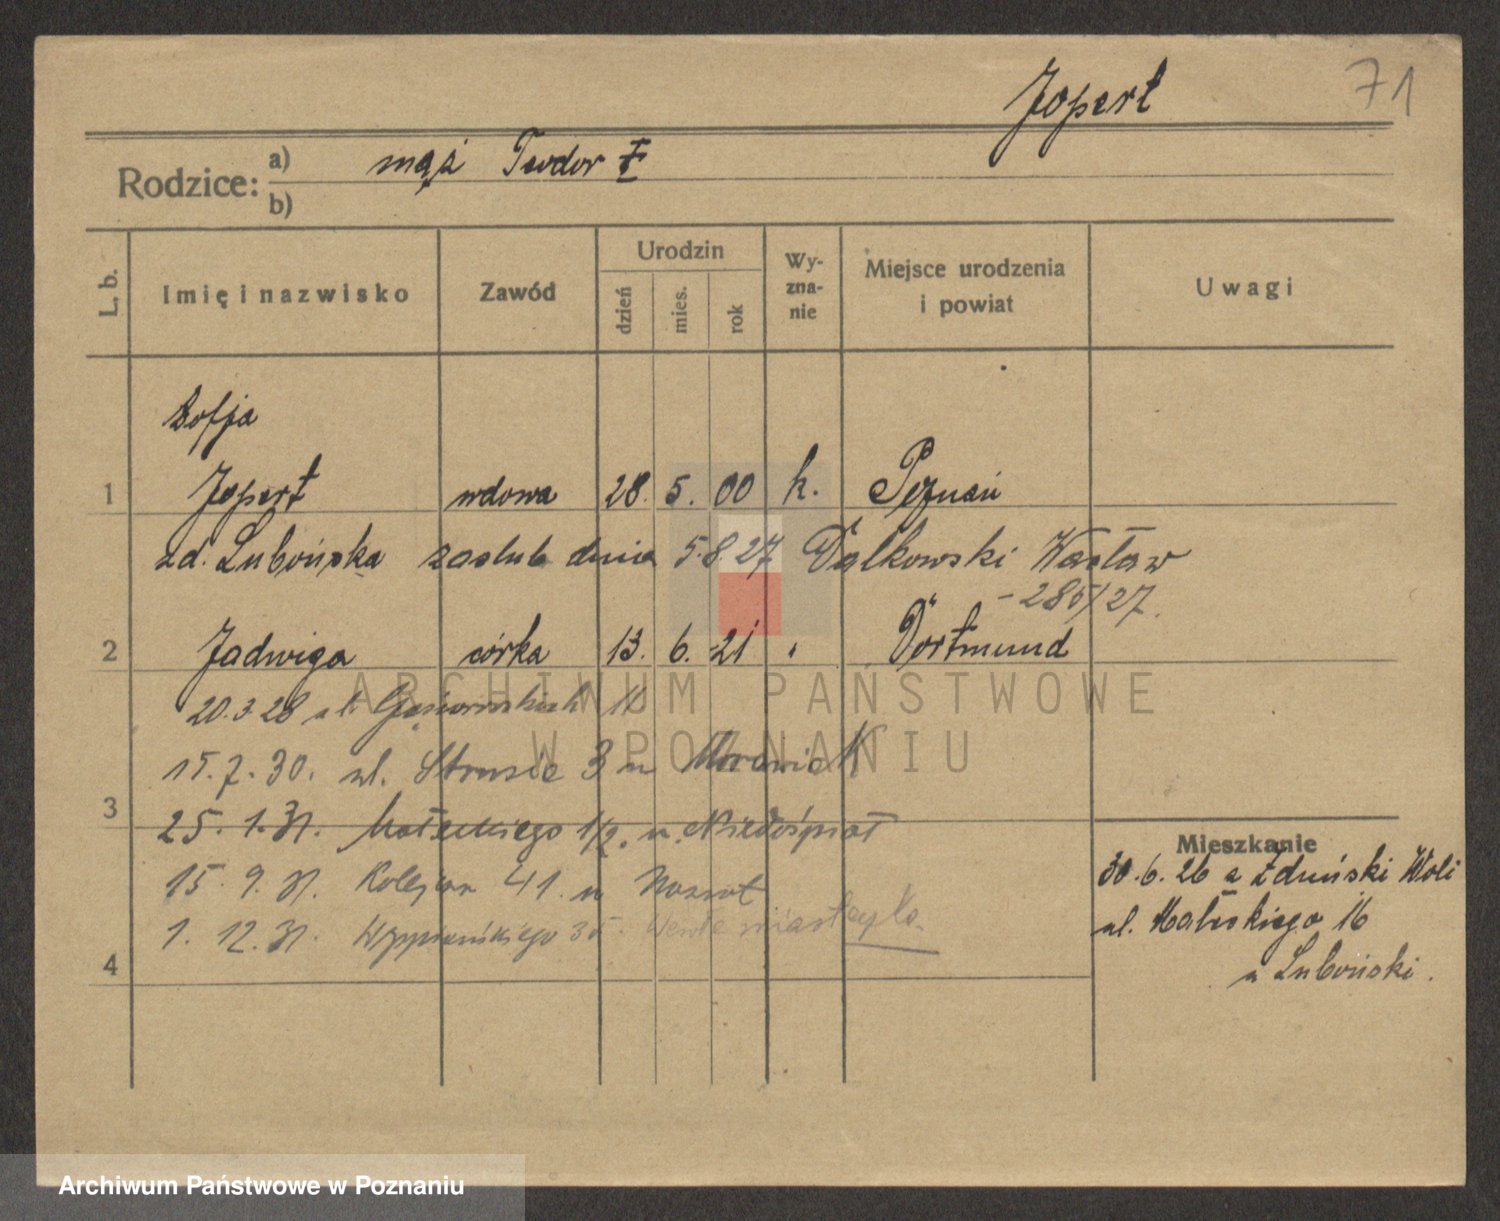 71
Jopert
Rodzice: a) mąż Teodor I
b)
L. b. Imię i nazwisko Zawód Urodzin dzień mies. rok Wy-zna-nie Miejsce urodzenia i powiat Uwagi
Zofja
1 Jopert wdowa 28. 5. 00 k. Poznań
zd. Lubońska zaślub dnia 5.8.27 Walkowski Wacław
-285/27.
2 Jadwiga córka 13. 6. 21 " Dortmund
20.3.28 ul. Gąsiorowskich 11
15.7.30. ul. Strusia 3 u Morawiak
3 25.1.31. Małeckiego 1/2. u. Niedośpiał
15.9.31. Kolejowa 41. u
1.12.31. Wyspiańskiego 35.
4
Mieszkanie
30.6.26 z Zduński Woli
ul. Małeckiego 16
u Luboński.
ARCHIWUM PAŃSTWOWE
W POZNANIU
Archiwum Państwowe w Poznaniu